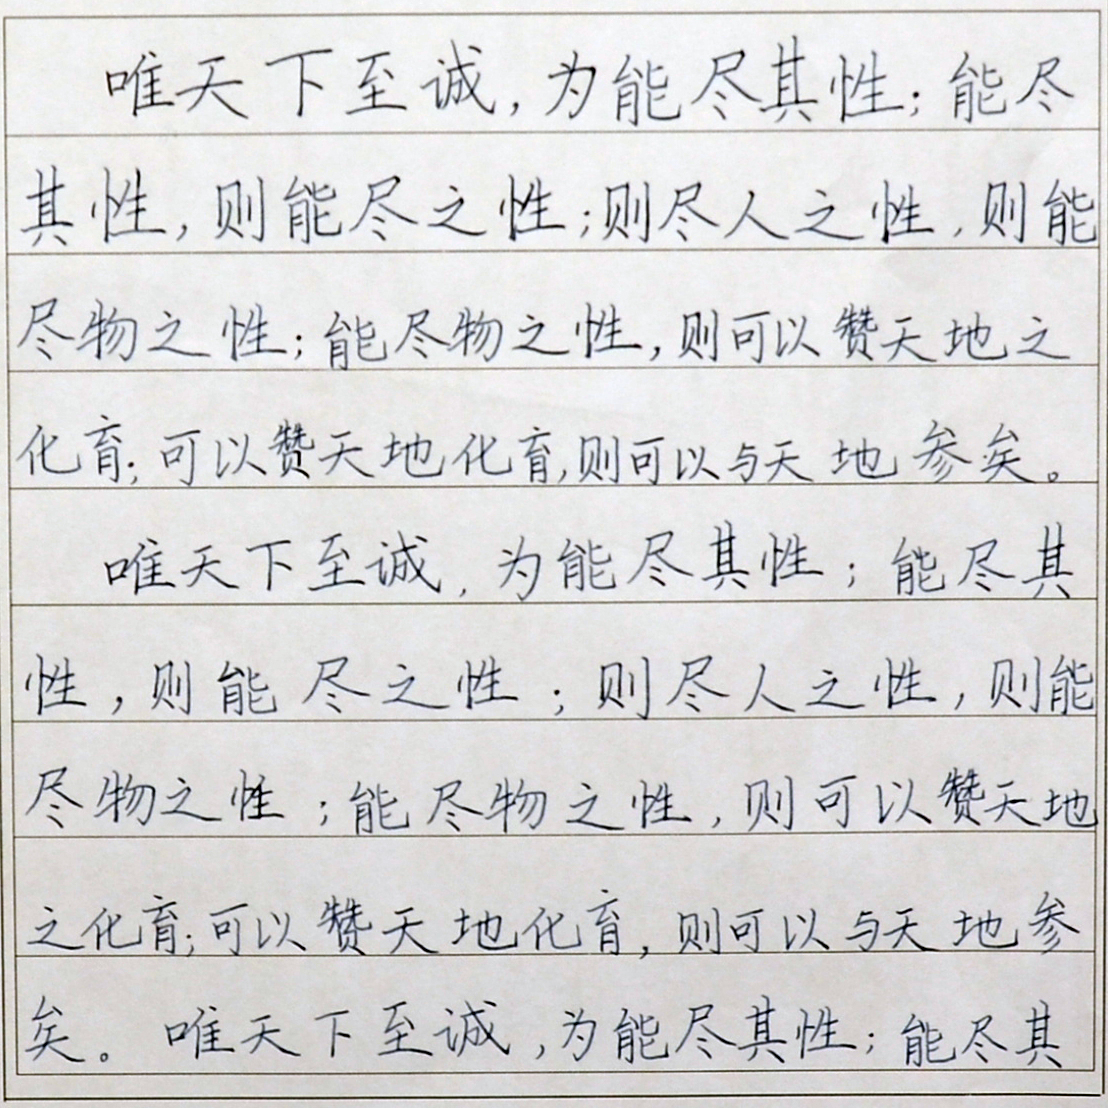 唯天下至诚,为能尽其性;能尽
其性,则能尽之性;则尽人之性,则能
尽物之性;能尽物之性,则可以赞天地之
化育;可以赞天地化育,则可以与天地参矣。
唯天下至诚,为能尽其性;能尽其
性,则能尽之性;则尽人之性,则能
尽物之性;能尽物之性,则可以赞天地
之化育;可以赞天地化育,则可以与天地参
矣。唯天下至诚,为能尽其性;能尽其